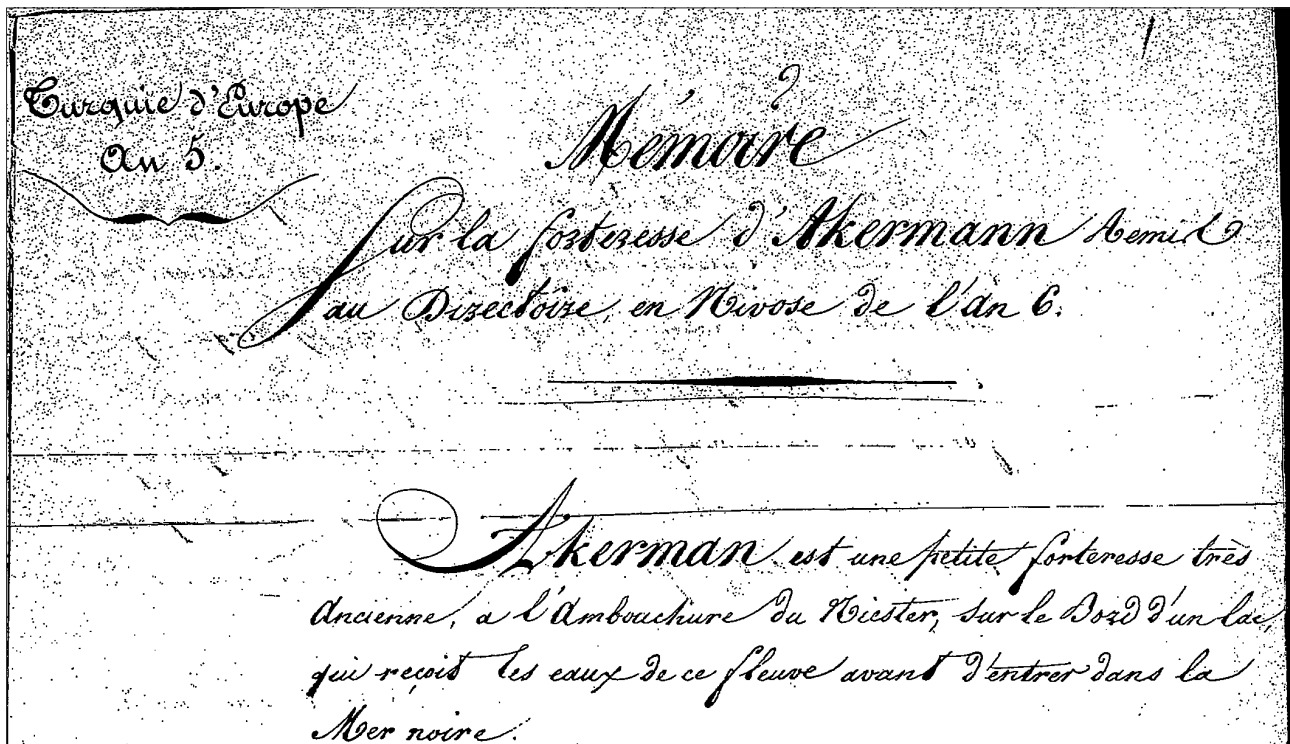 Turquie d'Europe
An 5.
Mémoire
Sur la forteresse d'Akermann Remis
au Directoire, en Nivose de l'an 6.
Akerman est une petite forteresse très
Ancienne, a l'Ambouchure du Niester, sur le Bord d'un lac,
qui reçoit les eaux de ce fleuve avant d'entrer dans la
Mer noire.